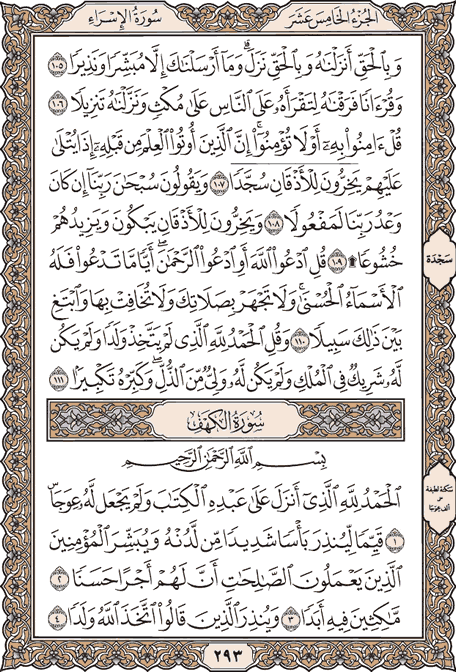 سُورَةُ الإِسْرَاءِ
الجُزْءُ الخَامِسَ عَشَرَ
وَبِالْحَقِّ أَنزَلْنَٰهُ وَبِالْحَقِّ نَزَلَ ۗ وَمَآ أَرْسَلْنَٰكَ إِلَّا مُبَشِّرًا وَنَذِيرًا ١٠٥
وَقُرْءَانًا فَرَقْنَٰهُ لِتَقْرَأَهُۥ عَلَى النَّاسِ عَلَىٰ مُكْثٍ وَنَزَّلْنَٰهُ تَنزِيلًا ١٠٦
قُلْ ءَامِنُوا۟ بِهِۦٓ أَوْ لَا تُؤْمِنُوٓا۟ ۚ إِنَّ الَّذِينَ أُوتُوا۟ الْعِلْمَ مِن قَبْلِهِۦٓ إِذَا يُتْلَىٰ
عَلَيْهِمْ يَخِرُّونَ لِلْأَذْقَانِ سُجَّدًا ١٠٧ وَيَقُولُونَ سُبْحَٰنَ رَبِّنَآ إِن كَانَ
وَعْدُ رَبِّنَا لَمَفْعُولًا ١٠٨ وَيَخِرُّونَ لِلْأَذْقَانِ يَبْكُونَ وَيَزِيدُهُمْ
خُشُوعًا ۩ ١٠٩ قُلِ ادْعُوا۟ اللَّهَ أَوِ ادْعُوا۟ الرَّحْمَٰنَ ۖ أَيًّا مَّا تَدْعُوا۟ فَلَهُ
الْأَسْمَآءُ الْحُسْنَىٰ ۚ وَلَا تَجْهَرْ بِصَلَاتِكَ وَلَا تُخَافِتْ بِهَا وَابْتَغِ
بَيْنَ ذَٰلِكَ سَبِيلًا ١١٠ وَقُلِ الْحَمْدُ لِلَّهِ الَّذِى لَمْ يَتَّخِذْ وَلَدًا وَلَمْ يَكُن
لَّهُۥ شَرِيكٌ فِى الْمُلْكِ وَلَمْ يَكُن لَّهُۥ وَلِىٌّ مِّنَ الذُّلِّ ۖ وَكَبِّرْهُ تَكْبِيرًۢا ١١١
سُورَةُ الكَهْفِ
بِسْمِ اللَّهِ الرَّحْمَٰنِ الرَّحِيمِ
الْحَمْدُ لِلَّهِ الَّذِىٓ أَنزَلَ عَلَىٰ عَبْدِهِ الْكِتَٰبَ وَلَمْ يَجْعَل لَّهُۥ عِوَجَا ۜ
١ قَيِّمًا لِّيُنذِرَ بَأْسًا شَدِيدًا مِّن لَّدُنْهُ وَيُبَشِّرَ الْمُؤْمِنِينَ
الَّذِينَ يَعْمَلُونَ الصَّٰلِحَٰتِ أَنَّ لَهُمْ أَجْرًا حَسَنًا ٢
مَّٰكِثِينَ فِيهِ أَبَدًا ٣ وَيُنذِرَ الَّذِينَ قَالُوا۟ اتَّخَذَ اللَّهُ وَلَدًا ٤
سَجْدَة
سكتة لطيفة
على
ألف عوجا
٢٩٣